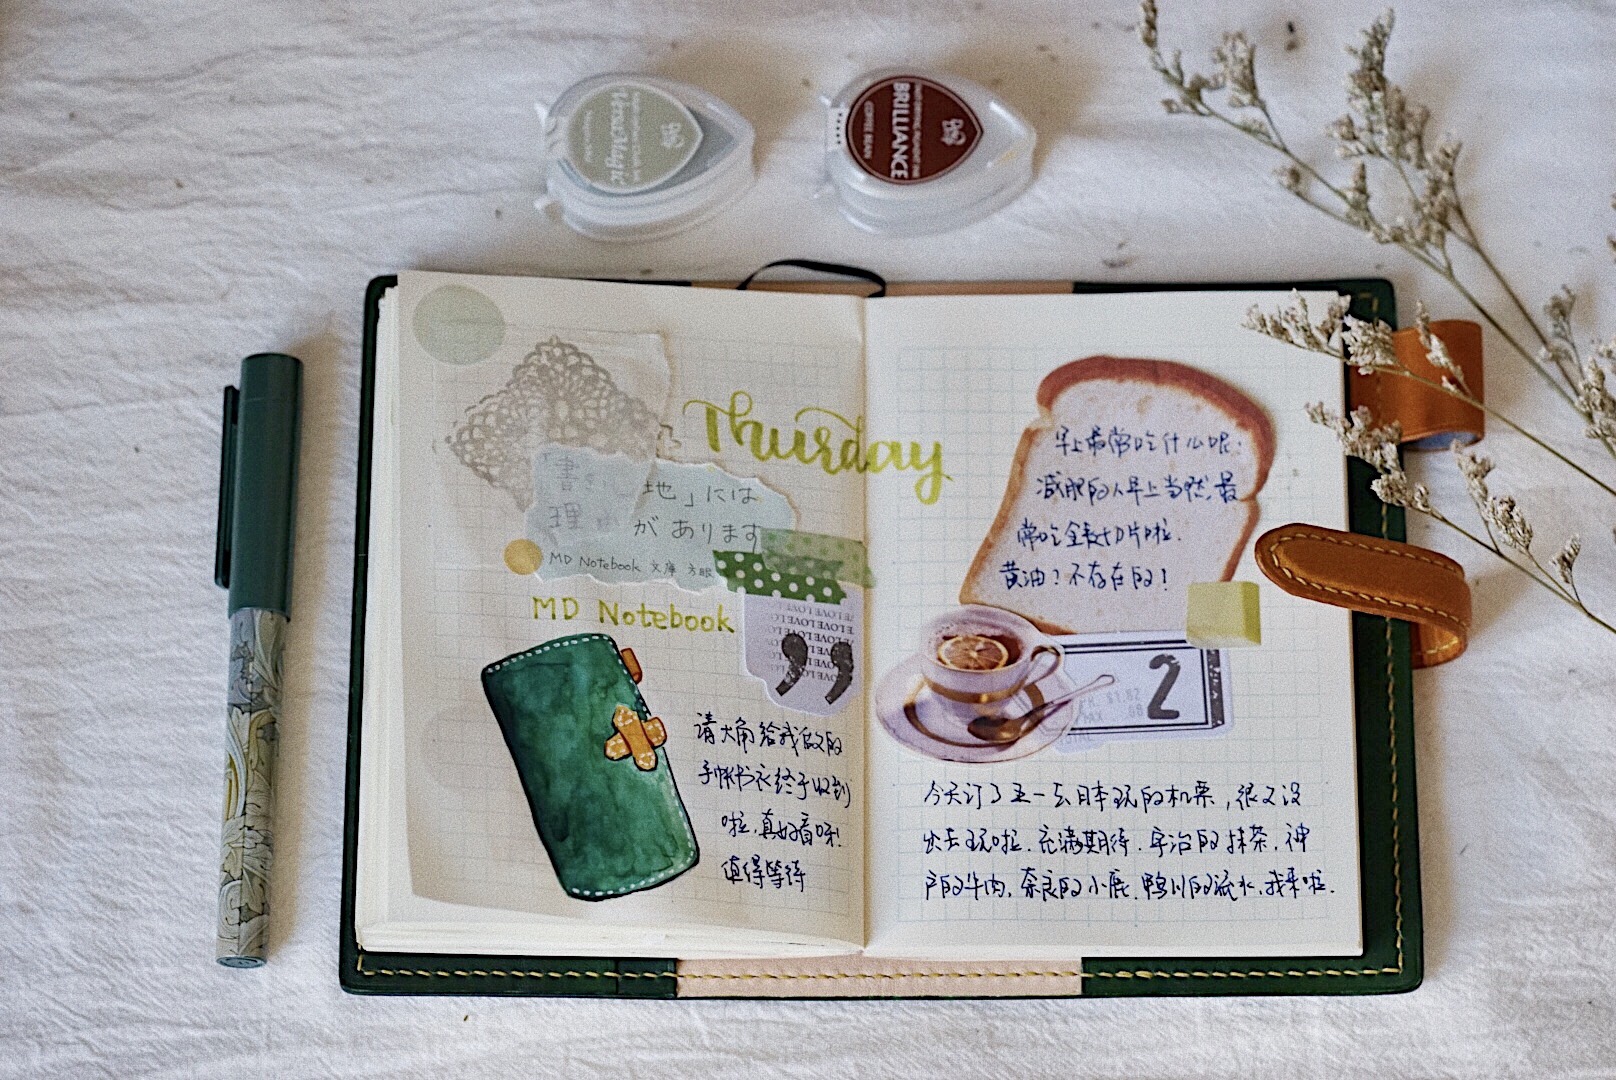 VersaMagic
BRILLIANCE
COFFEE BEAN
Thursday
「書き 地」には
理 があります
MD Notebook 文庫 方眼
MD Notebook
LOVE LOVE LOVE
请大角给我做的
手帐书衣终于收到
啦,真好看呀!
值得等待
早上最常吃什么呢:
减肥的人早上当然最
常吃全麦切片啦.
黄油?不存在的!
2
$1.82
今天订了五一去日本玩的机票,很久没
出去玩啦.充满期待.宇治的抹茶,神
户的牛肉,奈良的小鹿,鸭川的流水,我来啦.